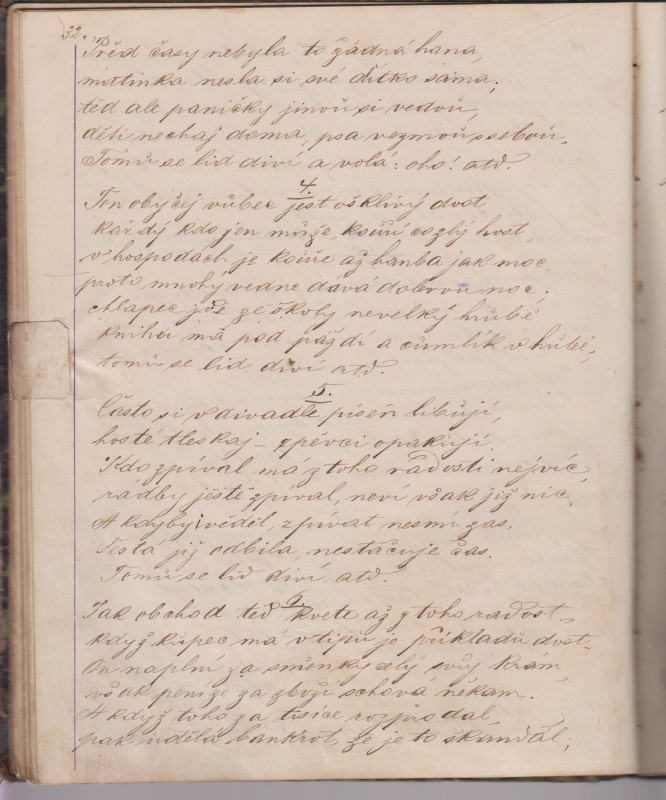 32.
Před časy nebyla to žádná hana,
matinka nesla si své dítko sama;
těd ale paničky jinoů si vedoů,
děti nechaj doma, psa vezmoů s seboů.
Tomů se lid diví a volá: oho! atď.
4.
Ten obyčej vůbec jest ošklivý dost,
každý kdo jen může, kouří co zlý host,
v hospodách je kouře až hanba jak moc,
proto mnohý vedne dává dobrou noc;
chlapec jde ze školy nevelký hrubě
knihu má pod páždí a cumlík v hubě;
tomu se lid diví atď.
5.
Často si v divadle píseň libůjí,
hosté tleskaj – zpěvci opakůjí.
Kdo zpíval má z toho radosti nejvíc,
rádby ještě zpíval, neví však již nic,
A kdyby i věděl, zpívat nesmí zas,
šestá již odbila, nestačuje čas.
Tomu se lid diví atď.
6.
Tak obchod teď kvete až z toho radost –
když kupec má vtipu je příkladů dost –
On naplní za směnky celý svůj krám,
však peníze za zboží schová někam.
A když toho za tisíce rozprodal,
pak udělá bankrot, že je to škandál;